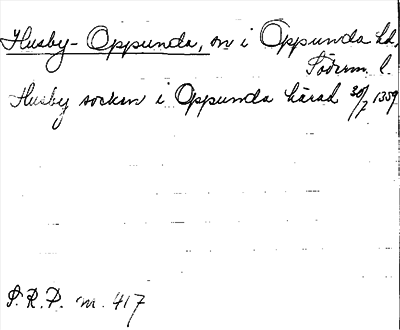 Husby-Oppunda, sn i Oppunda hd,
Söderm. l.
Husby socken i Oppunda härad 30/7 1359
S.R.P. nr. 417